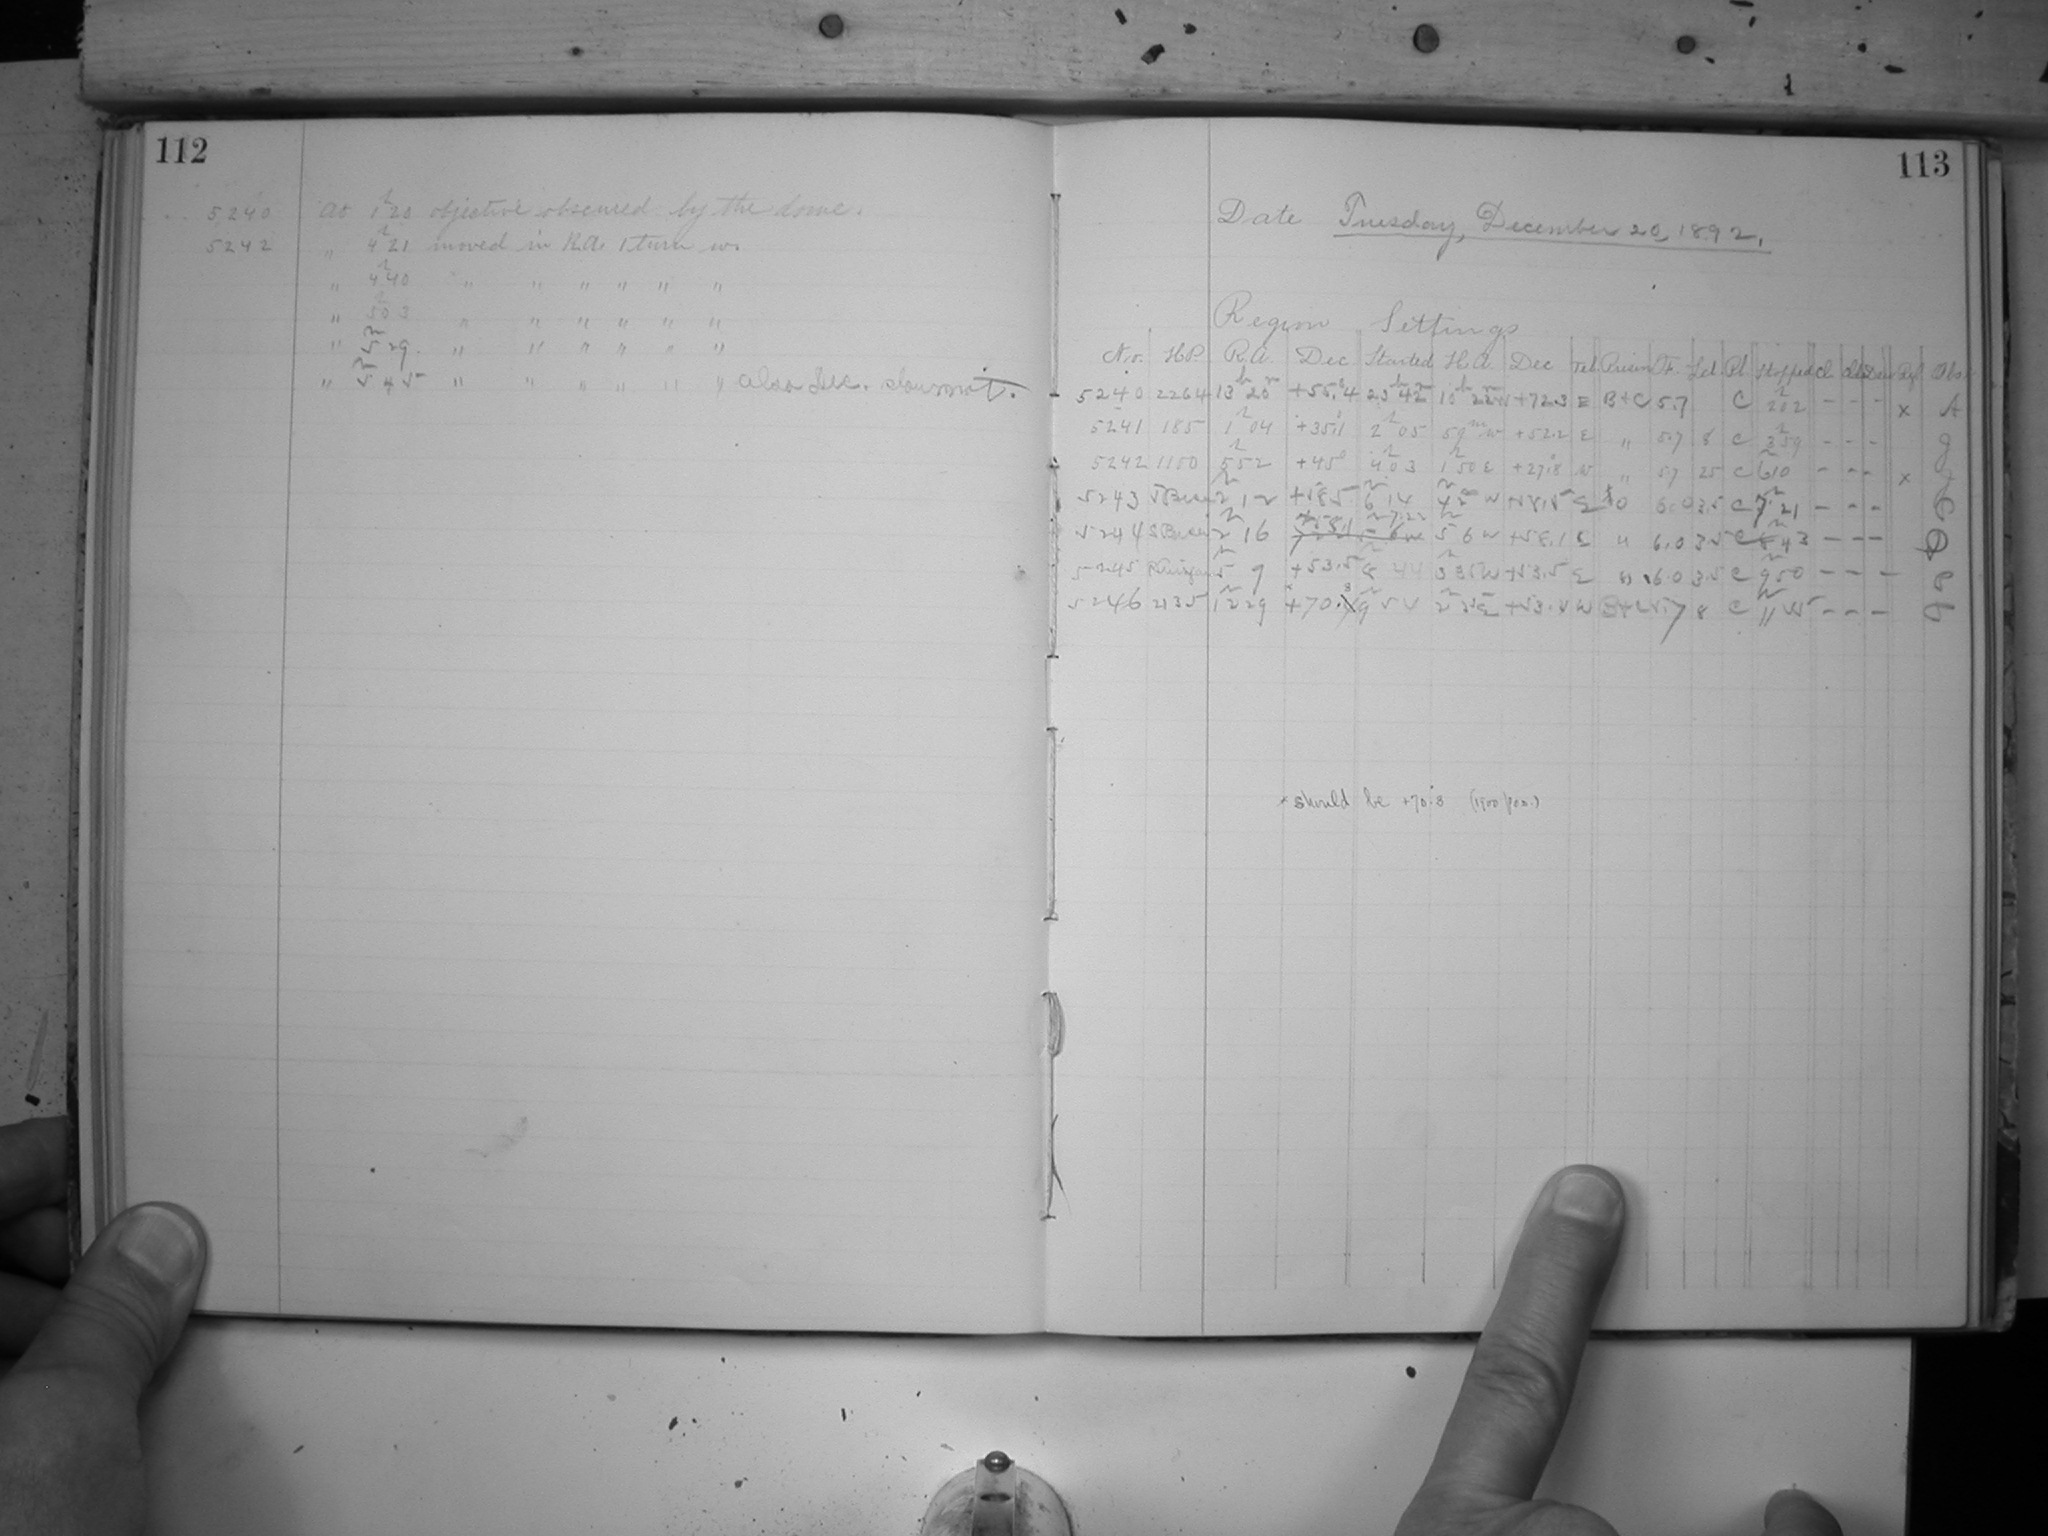 112
5240 At 1h 20 objective obscured by the dome.
5242 " 4h 21 moved in R.A. 1 turn w.
" 4h 40 " " " " " "
" 5h 03 " " " " " "
" 5h 29. " " " " " "
" 5h 45 " " " " " " Also Dec.
113
Date Tuesday, December 20, 1892.
Region Settings
No. H.P. R.A. Dec Started H.A. Dec Tel Prism F. Pl Stopped Cl Obs
5240 2264 13h 20m +55.4 23h 42m 10h 22m w +72.3 E B+C 5.7 C 2h 02 - - - x A
5241 185 1h 04 +35.1 2h 05 59m w +52.2 E " 5.7 8 C 3h 59 - - - g
5242 1150 5h 52 +45° 4h 03 1h 50 E +27.8 w " 5.7 25 C 6h 10 - - - x
5243 2h 12 +58.5 6h 14 w +58.5 E 0 6.0 3.5 C 7h 21 - - -
5244 2h 16 +58.1 7.22 5h 6 w +58.1 E " 6.0 3.5 C 8h 43 - - -
5245 5h 9 +53.5 8h 44 3h 35 w +53.5 E " 6.0 3.5 C 9h 50 - - -
5246 2135 12h 29 *+70.8 9h 55 2h 35 E +53.4 w B+C 5.7 8 C 11h 55 - - -
* should be +70.8 (1900 pos.)